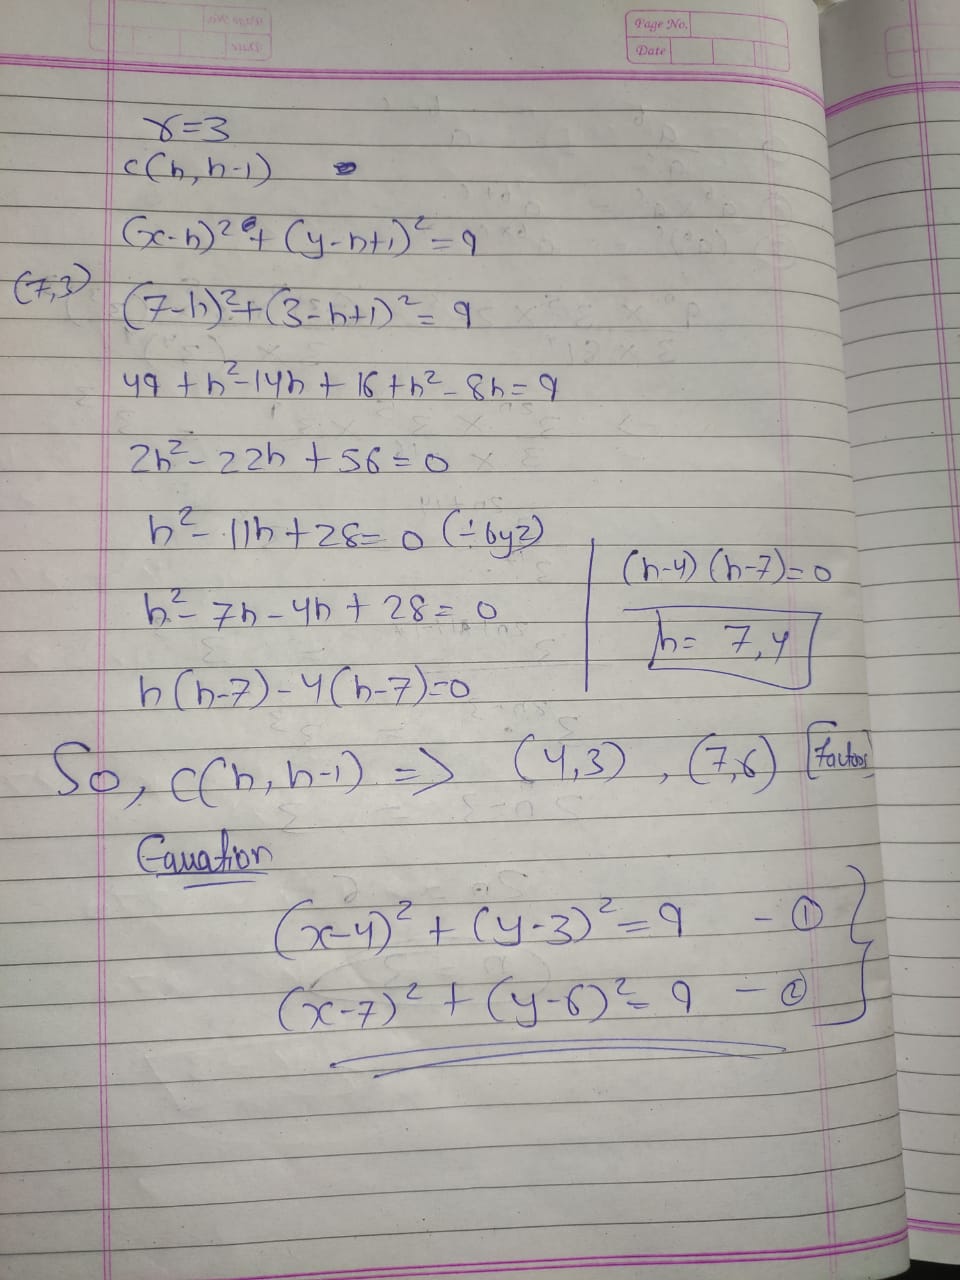 Page No.
Date
r=3
c(h, h-1)
(x-h)² + (y-h+1)² = 9
(7,3)
(7-h)² + (3-h+1)² = 9
49 + h² - 14h + 16 + h² - 8h = 9
2h² - 22h + 56 = 0
h² - 11h + 28 = 0 (÷ by 2)
h² - 7h - 4h + 28 = 0
h(h-7) - 4(h-7) = 0
(h-4) (h-7) = 0
h = 7, 4
So, c(h, h-1) => (4,3), (7,6) [Factors]
Equation
(x-4)² + (y-3)² = 9 - ①
(x-7)² + (y-6)² = 9 - ②